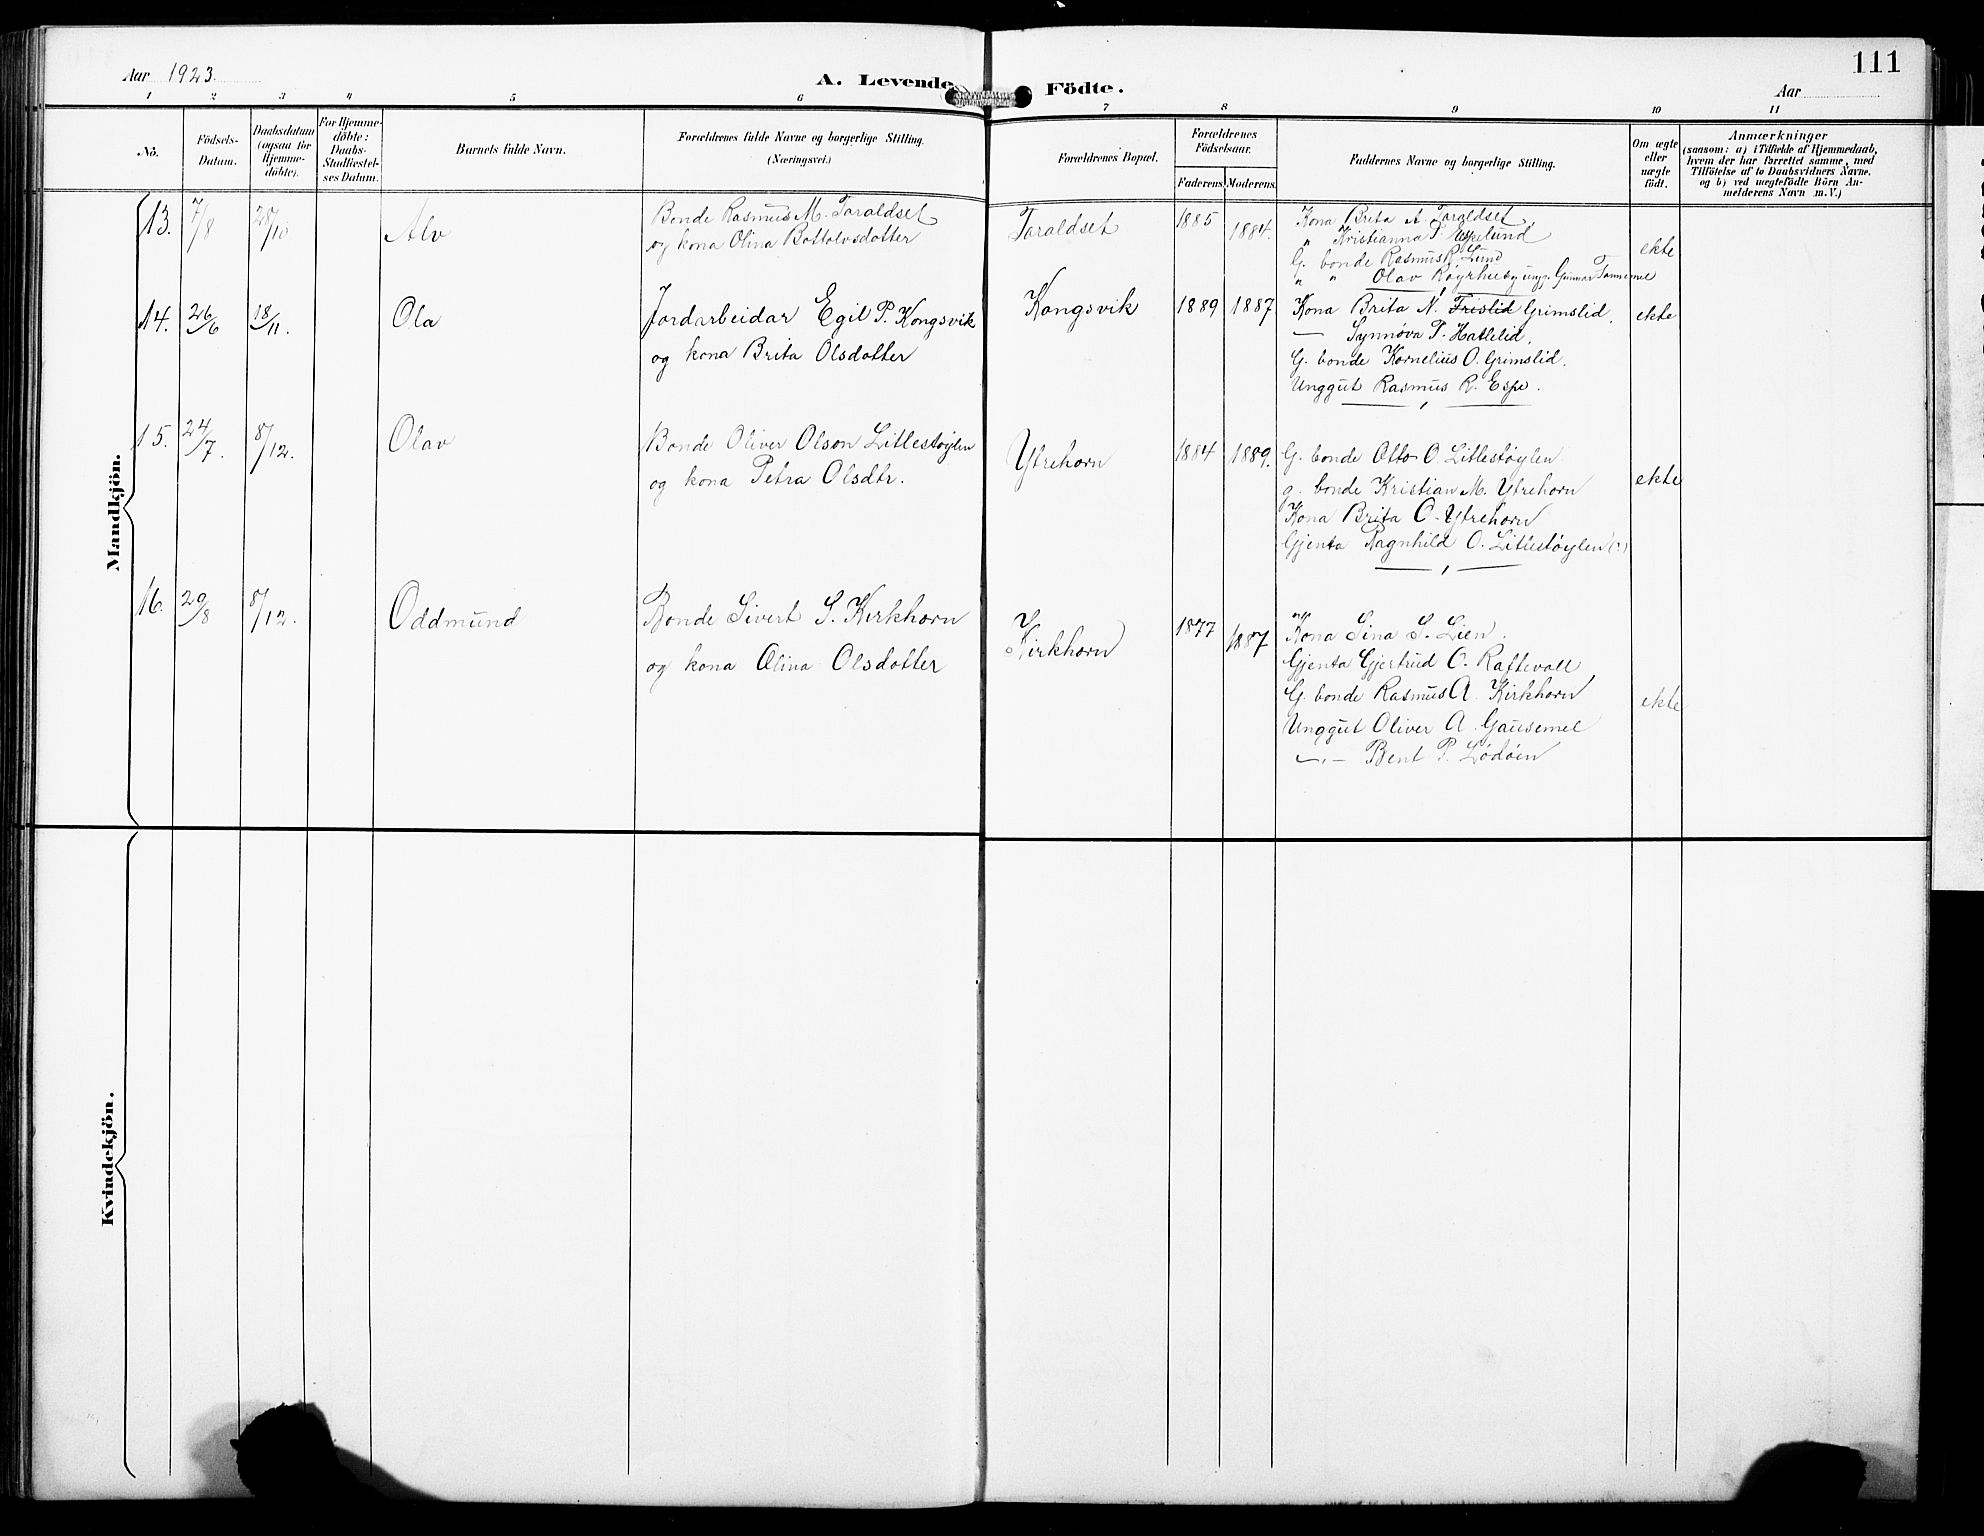 Aar 1923.
A. Levende Födte.
111
Aar
1 2 3 4 5 6 7 8 9 10 11
No.
Födsels-
Datum.
Daabsdatum
(ogsaa for
Hjemme-
döbte).
For Hjemme-
döbte:
Daabs-
Stadfæstel-
ses Datum.
Barnets fulde Navn.
Forældrenes fulde Navne og borgerlige Stilling.
(Næringsvei.)
Forældrenes Bopæl.
Forældrenes
Födselsaar.
Faderens. Moderens.
Faddernes Navne og borgerlige Stilling.
Om ægte
eller
uægte
født.
Anmærkninger
(saasom: a) i Tilfælde af Hjemmedaab,
hvem der har forrettet samme, med
Tilföielse af to Daabsvidners Navne.
og b) ved uægtefödte Börn An-
melderens Navn m.V.)
Mandkjön.
13. 7/8 28/10 Alv
Bonde Rasmus M. Taraldset
og kona Olina Bottolvsdotter
Taraldset 1885 1884.
Kona Brita A. Taraldset
" Kristianna T. Espelund
G. bonde Rasmus R. Lund
" " Olav Røyrhus og ungg. Gunnar Tannemel
ekte
14. 26/6 18/11. Ola
Jordarbeidar Egil P. Kongsvik
og kona Brita Olsdotter
Kongsvik 1889 1887
Kona Brita N. Frislid Grimslid.
— Synnøva P. Hatlelid.
G. bonde Kornelius O. Grimslid.
Unggut Rasmus R. Espe.
ekte
15. 24/7. 8/12. Olav
Bonde Oliver Olson Litlestøylen
og kona Petra Olsdtr.
Ytrehorn 1884 1889.
G. bonde Otto O. Litlestøylen
g. bonde Kristian M. Ytrehorn
Kona Brita O. Ytrehorn
Gjenta Ragnhild O. Litlestøylen (?)
ekte
16. 29/8 8/12. Oddmund
Bonde Sivert S. Kirkhorn
og kona Olina Olsdotter
Kirkhorn 1877 1887
Kona Sina S. Lien.
Gjenta Gjertrud O. Raftevoll
G. bonde Rasmus A. Kirkhorn
Unggut Oliver A. Gausemel
—„— Bent P. Lødøen
ekte
Kvindekjön.